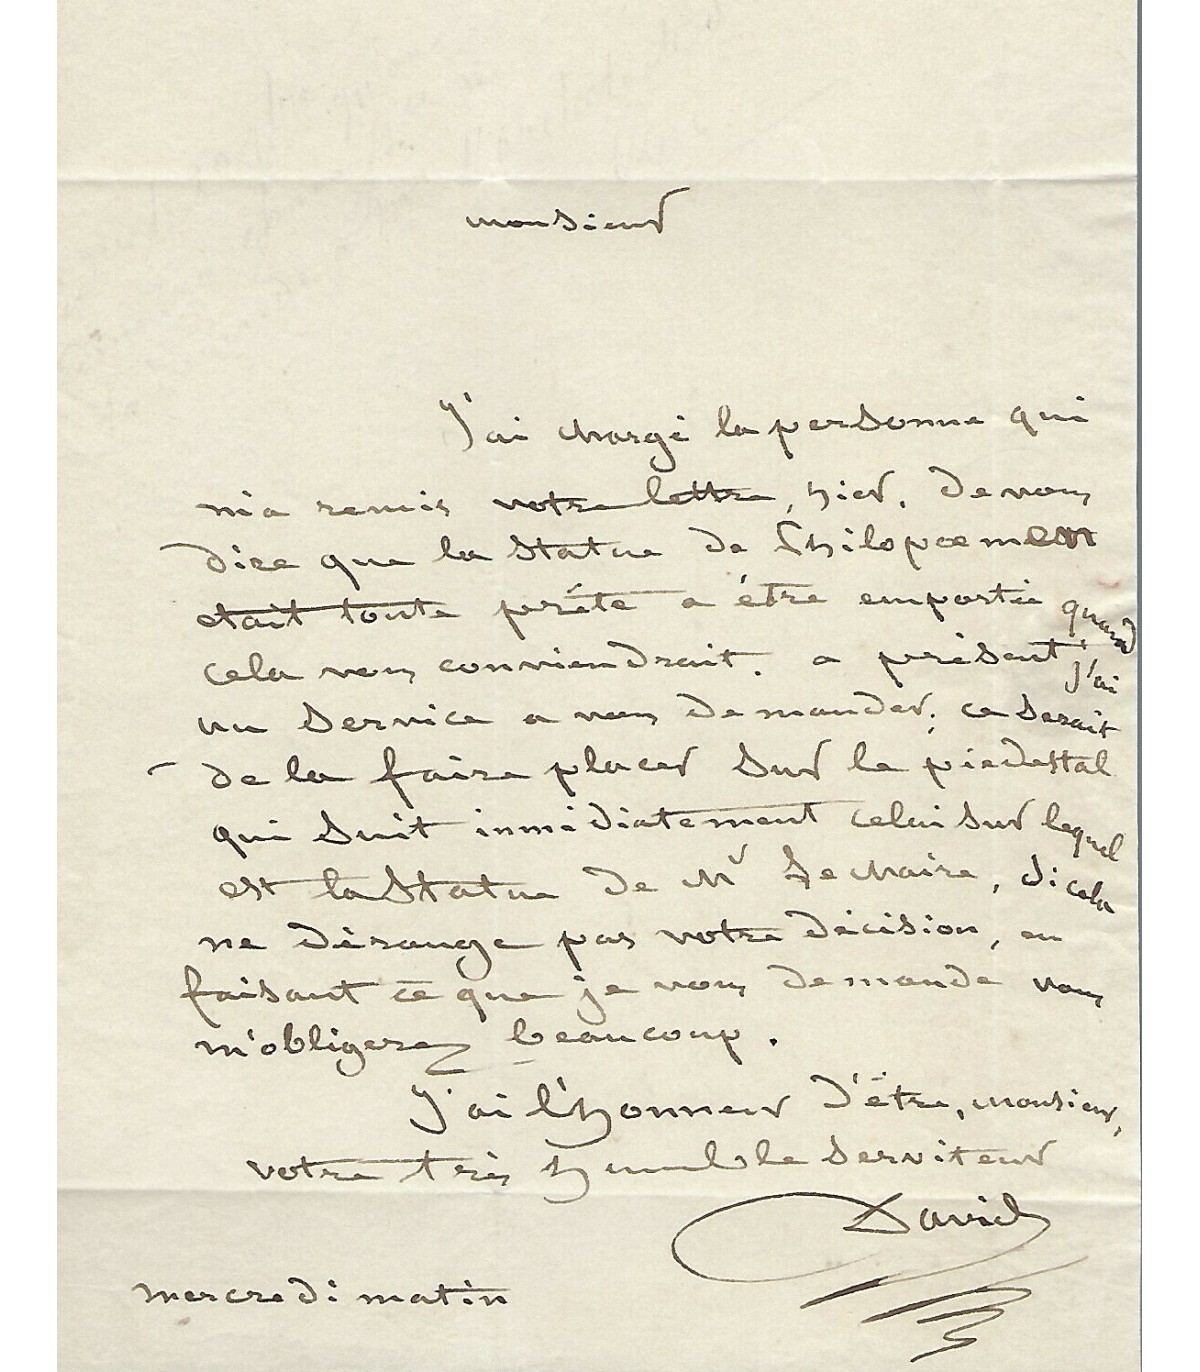 monsieur
J'ai chargé la personne qui
m'a remis votre lettre, hier, de vous
dire que la statue de Philopoemen
etait toute prête a être emportée quand
cela vous conviendrait. a présent j'ai
un service a vous demander, ce serait
de la faire placer sur le piedestal
qui suit immédiatement celui sur lequel
est la statue de Mr Lemaire, si cela
ne dérange pas votre décision, en
faisant ce que je vous demande vous
m'obligerez beaucoup.
J'ai l'honneur d'être, monsieur,
votre très humble serviteur
David
mercredi matin